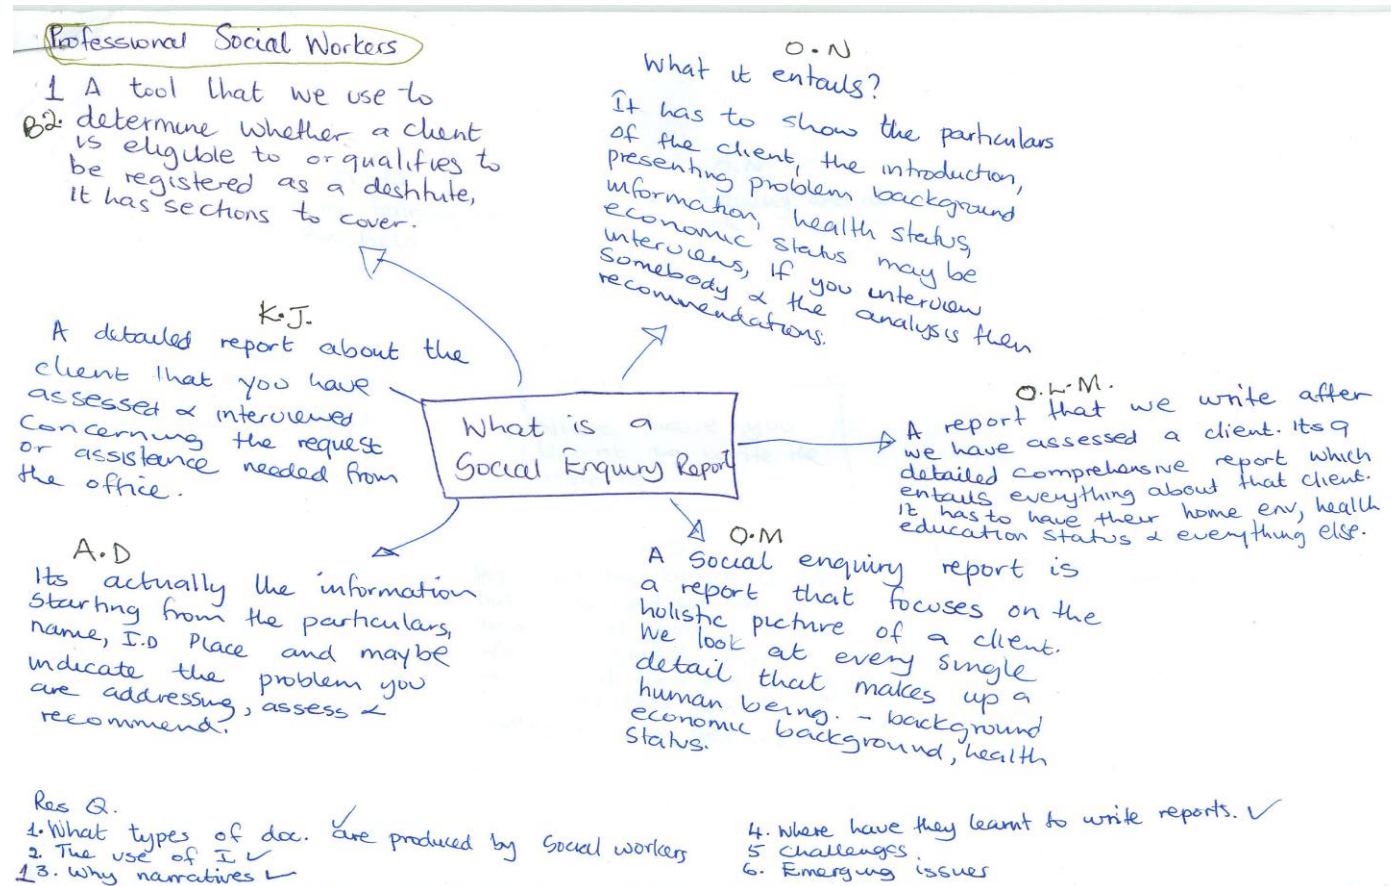 Professional Social Workers
1 A tool that we use to
B2. determine whether a client
is eligible to or qualifies to
be registered as a destitute,
it has sections to cover.
O.N
What it entails?
It has to show the particulars
of the client, the introduction,
presenting problem background
information, health status,
economic status may be
interviews, if you interview
somebody & the analysis then
recommendations.
K.J.
A detailed report about the
client that you have
assessed & interviewed
concerning the request
or assistance needed from
the office.
What is a
Social Enquiry Report
O.L.M.
A report that we write after
we have assessed a client. Its a
detailed comprehensive report which
entails everything about that client.
It has to have their home env, health
education status & everything else.
A.D
Its actually the information
starting from the particulars,
name, I.D Place and maybe
indicate the problem you
are addressing, assess &
recommend.
O.M
A Social enquiry report is
a report that focuses on the
holistic picture of a client.
We look at every single
detail that makes up a
human being. - background
economic background, health
Status.
Res Q.
1. What types of doc. are produced by Social workers
2. The use of I ✓
1 3. Why narratives ✓
4. Where have they learnt to write reports. ✓
5 Challenges.
6. Emerging issues